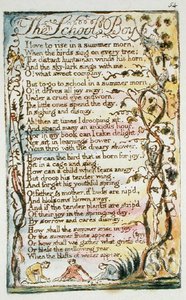 54
The School Boy
I love to rise in a summer morn,
When the birds sing on every tree;
The distant huntsman winds his horn,
And the sky-lark sings with me.
O! what sweet company.
But to go to school in a summer morn
O! it drives all joy away;
Under a cruel eye outworn,
The little ones spend the day,
In sighing and dismay.
Ah! then at times I drooping sit,
And spend many an anxious hour.
Nor in my book can I take delight,
Nor sit in learnings bower,
Worn thro with the dreary shower.
How can the bird that is born for joy,
Sit in a cage and sing.
How can a child when fears annoy.
But droop his tender wing,
And forget his youthful spring.
O! father & mother, if buds are nip'd,
And blossoms blown away,
And if the tender plants are strip'd
Of their joy in the springing day,
By sorrow and cares dismay,
How shall the summer arise in joy
Or the summer fruits appear,
Or how shall we gather what griefs destroy
Or bless the mellowing year,
When the blasts of winter appear.